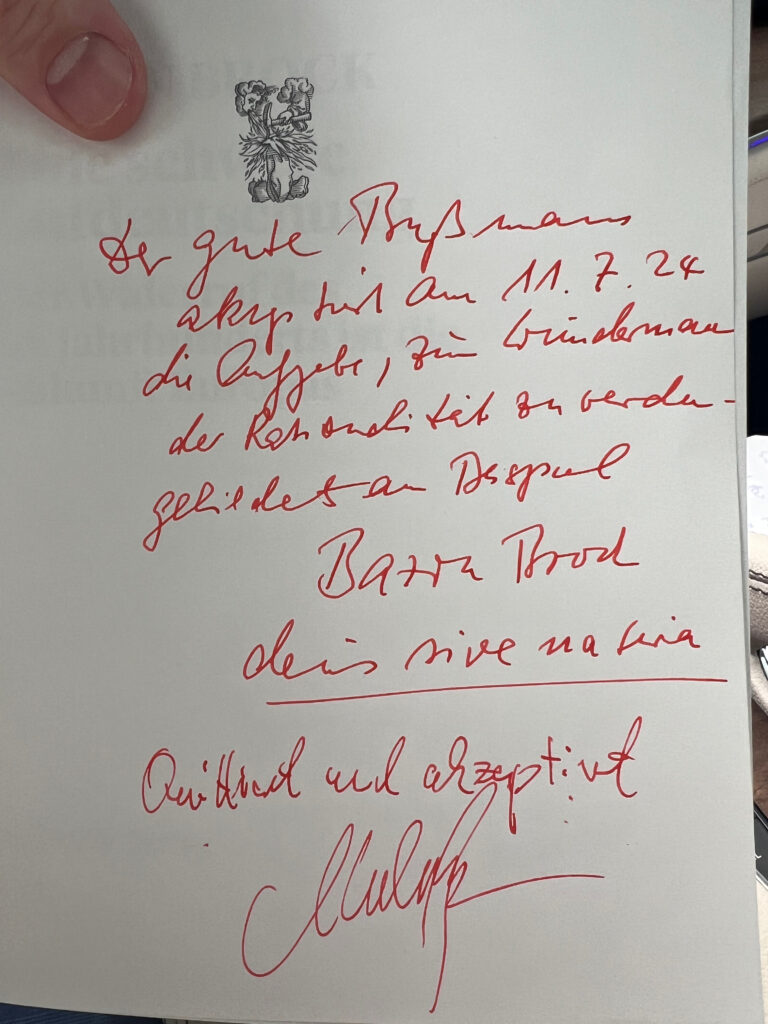 Der gute Bußmann
akzeptiert am 11.7.24
die Aufgabe, zum Wundermann
der Rationalität zu werden -
am Beispiel
Brod
deus sive natura
Quittiert und akzeptiert